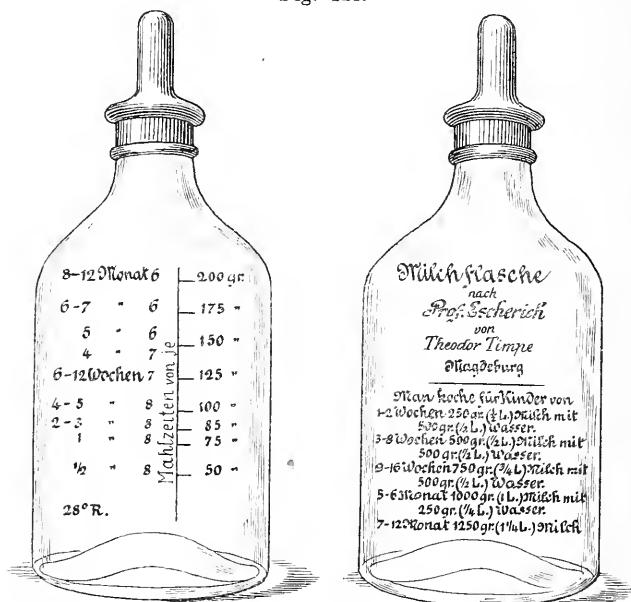 8-12 Monat 6 200 gr.
6-7 " 6 175 "
5 " 6
150 "
4 " 7
6-12 Wochen 7 125 "
4-5 " 8 100 "
2-3 " 8 85 "
1 " 8 75 "
½ " 8 50 "
28° R.
Mahlzeiten von je
Milchflasche
nach
Prof. Escherich
von
Theodor Timpe
Magdeburg
Man koche für Kinder von
1-2 Wochen 250 gr. (¼ L.) Milch mit
500 gr. (½ L.) Wasser.
3-8 Wochen 500 gr. (½ L.) Milch mit
500 gr. (½ L.) Wasser.
9-16 Wochen 750 gr. (¾ L.) Milch mit
500 gr. (½ L.) Wasser.
5-6 Monat 1000 gr. (1 L.) Milch mit
250 gr. (¼ L.) Wasser.
7-12 Monat 1250 gr. (1¼ L.) Milch